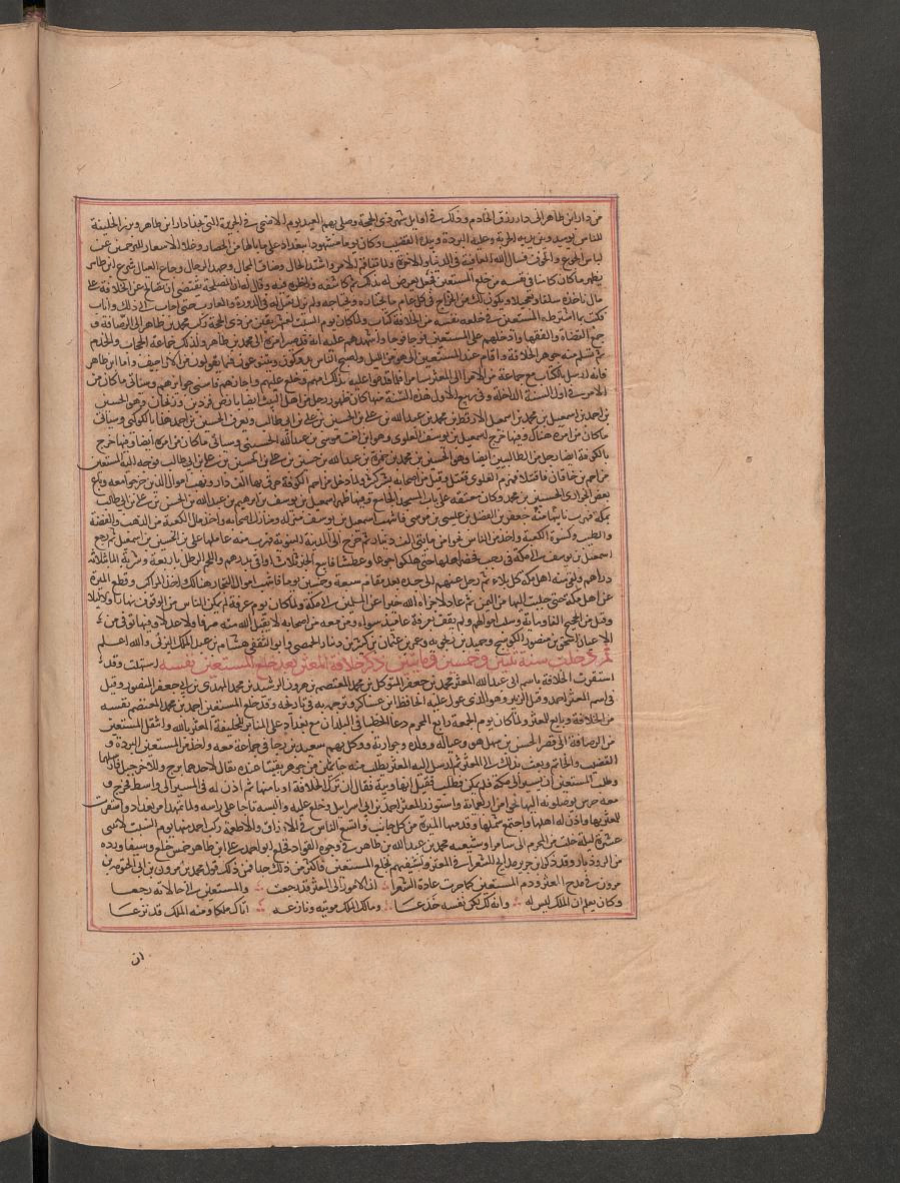 من دار ابن طاهر الى دار رزق الخادم وذلك في اوايل شهر ذي الحجة وصلى بهم العيد يوم الاضحى في الجزيرة التي بحذا دار ابن طاهر وبرز الخليفة
للناس يوميد وبين يديه الحربة وعليه البردة وبيده القضيب وكان يوما مشهودا ببغداد على ما باهلها من الحصار وغلاء الاسعار المترجمين عن
لباس الجوع والخوف فنسال الله العافية في الدنيا والاخرة ولما تفاقم الامر واشتد الحال وضاق المجال وجهد الرجال وجاع العيال شرع ابن طاهر
يظهر ما كان كامنا في نفسه من خلع المستعين فجعل يعرض له بذلك ثم كاشفه واظهره فيه وقال له ان المصلحة تقتضي ان تخلع عن الخلافة على
مال تاخذه سلفا وتعجيلا ويكون لك من الخراج في كل عام ما تختاره وتحتاجه ولم يزل يفتل له في الذروة والغارب حتى اجاب الى ذلك واناب
فكتب بما اشترطه المستعين في خلعه نفسه من الخلافة كتاب ولما كان يوم السبت لعشر بقين من ذي الحجة ركب محمد بن طاهر الى الرصافة و
جمع القضاة والفقها وادخلهم على المستعين فوجا فوجا واشهدهم عليه انه قد صير امره الى محمد بن طاهر وكذلك جماعة الحجاب والخدم
ثم تسلم منه جوهر الخلافة واقام عند المستعين الى هوي من الليل واصبح الناس يذكرون ويتنوعون فيما يقولون من الاراجيف واما ابن طاهر
فانه ارسل بالكتاب مع جماعة من الامرا الى المعتز بسامرا فلما قدموا عليه بذلك اكرمهم وخلع عليهم واجازهم فاسنى جوايزهم وسياتي ما كان من
الامر في اول السنة الداخلة وفي ربيع الاول هذه السنة منها كان ظهور رجل من اهل البيت ايضا بارض قزوين وزنجان وهو الحسين
بن احمد بن اسمعيل بن محمد بن اسمعيل الارقط بن محمد بن عبدالله بن علي بن الحسين بن علي بن ابي طالب ويعرف الحسين بن احمد هذا بالكوكبي وسياتي
ما كان من امره هناك وفيها خرج اسمعيل بن يوسف العلوي وهو ابن اخت موسى بن عبدالله الحسيني وسياتي ما كان من امره ايضا وفيها خرج
بالكوفة ايضا رجل من الطالبيين ايضا وهو الحسين بن محمد بن حمزة بن عبدالله بن حسين بن علي بن الحسين بن علي بن ابي طالب فوجه اليه المستعين
مزاحم بن خاقان فاقتتلا فهزم العلوي وقتل من اصحابه بشر كثير ولما دخل مزاحم الكوفة حرق بها الف دار ونهب اموال الذين خرجوا معه وباع
بعض جواري الحسين بن محمد وكان معتقه على باب المسجد الجامع وفيها ظهر اسمعيل بن يوسف بن ابرهيم بن عبدالله بن الحسن بن الحسن بن علي بن ابي طالب
بمكة فهرب نايبها منه جعفر بن الفضل بن عيسى بن موسى فانتهب اسمعيل بن يوسف منزله ومنازل اصحابه واخذ مال الكعبة من الذهب والفضة
والطيب وكسوة الكعبة واخذ من الناس نحوا من مايتي الف دينار ثم خرج الى المدينة النبوية فهرب منه عاملها علي بن الحسين بن اسمعيل ثم رجع
اسمعيل بن يوسف الى مكة في رجب فحصر اهلها حتى هلكوا جوعا وعطشا فابيع الخبز ثلاث اواقي بدرهم واللحم الرطل باربعة وشربة الما بثلاثة
دراهم ولقي منه اهل مكة كل بلاء ثم رحل عنهم الى جدة بعد مقام سبعة وخمسين يوما فانتهب اموال التجار هنالك واخذ المراكب وقطع الميرة
عن اهل مكة حتى جلبت اليها من اليمن ثم عاد لا جزاه الله خيرا عن المسلمين الى مكة ولما كان يوم عرفة لم يمكن الناس من الوقوف نهارا ولا ليلا
وقتل من الحجيج الفا ومايه وسلب اموالهم ولم يقف بعرفة عامئذ سواه ومن معه من اصحابه لا يقبل الله منه صرفا ولا عدلا وفيها توفي من
الاعيان اسحق بن منصور الكوسج وحميد بن زنجويه وعمرو بن عثمان بن كثير بن دينار الحمصي وابو التقي هشام بن عبد الملك اليزني والله اعلم
ثم دخلت سنة ثنتين وخمسين ومايتين ذكر خلافة المعتز بعد خلع المستعين نفسه استهلت وقد
استقرت الخلافة باسم ابي عبدالله المعتز محمد بن جعفر المتوكل بن محمد المعتصم بن هرون الرشيد بن محمد المهدي بن ابي جعفر المنصور وقيل
ان اسم المعتز احمد وقيل الزبير وهو الذي عول عليه الحافظ ابن عساكر وترجمه به في تاريخه وقد خلع المستعين احمد بن محمد المعتصم نفسه
من الخلافة وبايع للمعتز ولما كان يوم الجمعة رابع المحرم دعا الخطبا في البلدان مع بغداد على المنابر للخليفة المعتز بالله وانتقل المستعين
من الرصافة الى قصر الحسن بن سهل هو وعياله وولده وجواريه ووكل بهم سعيد بن رجا في جماعة معه واخذ من المستعين البردة و
القضيب والخاتم وبعث بذلك الى المعتز ثم ارسل اليه المعتز يطلب منه خاتمين من جوهر بقيا عنده يقال لاحدهما برج وللاخر جبل فارسلهما
وطلب المستعين ان يسير الى مكة فلم يمكن فطلب البصرة فقيل انها وبية فقال ان ترك الخلافة اوبا منها ثم اذن له في المسير الى واسط فخرج و
معه حرس يوصلونه اليها نحوا من اربعماية واستوزر المعتز احمد بن ابي اسرايل وخلع عليه والبسه تاجا على راسه ولما تمهد امر بغداد واستقرت
للمعتز بها واذن له اهلها واجتمع شملها وقدمها الميرة من كل جانب واتسع الناس في الارزاق والاطعمة ركب احمد منها يوم السبت لاثنتي
عشرة ليلة خلت من المحرم الى سامرا وشيعه محمد بن عبدالله بن طاهر في وجوه القواد فخلع ابو احمد على ابن طاهر خمس خلع وسيفا ورده
من الروذبار وقد ذكر ابن جرير مدايح الشعرا في المعتز وتشفيهم بخلع المستعين فاكثر من ذلك جدا فمن ذلك قول محمد بن مروان بن ابي الجنوب بن
مروان في مدح المعتز وذم المستعين كما جرت عادة الشعرا ان الامور الى المعتز قد رجعت والمستعين الى حالاته رجعا
وكان يعلم ان الملك ليس له وانه لك لكن نفسه خدعا ومالك الملك موتيه ونازعه اتاك ملكا ومنه الملك قد نزعا
ان